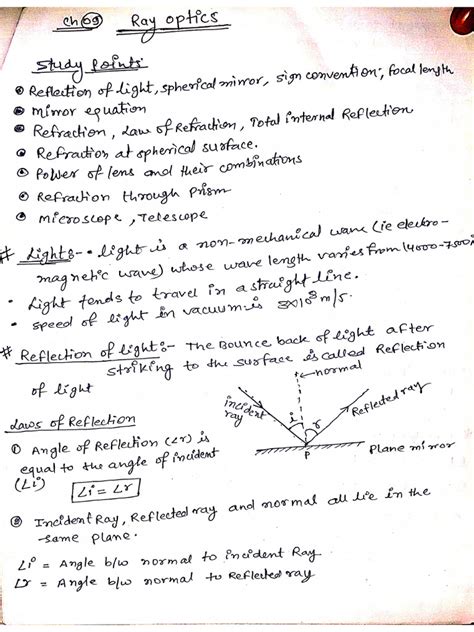 Ch 09 Ray optics
Study Points:
Reflection of light, spherical mirror, sign convention, focal length
mirror equation
Refraction, Law of Refraction, Total internal Reflection
Refraction at spherical surface.
Power of lens and their combinations
Refraction through Prism
Microscope, Telescope
# Light:- • light is a non-mechanical wave (ie electro-
magnetic wave) whose wave length varies from (4000-7500
• Light tends to travel in a straight line.
• speed of light in vacuum is 3×10⁸ m/s.
# Reflection of light:- The Bounce back of light after
striking to the surface is called Reflection
of light
normal
incident
ray
i
r
Reflected ray
P
Plane mirror
Laws of Reflection
① Angle of Reflection (∠r) is
equal to the angle of incident
(∠i)
∠i = ∠r
② Incident Ray, Reflected ray and normal all lie in the
same plane.
∠i = Angle b/w normal to incident Ray
∠r = Angle b/w normal to Reflected ray